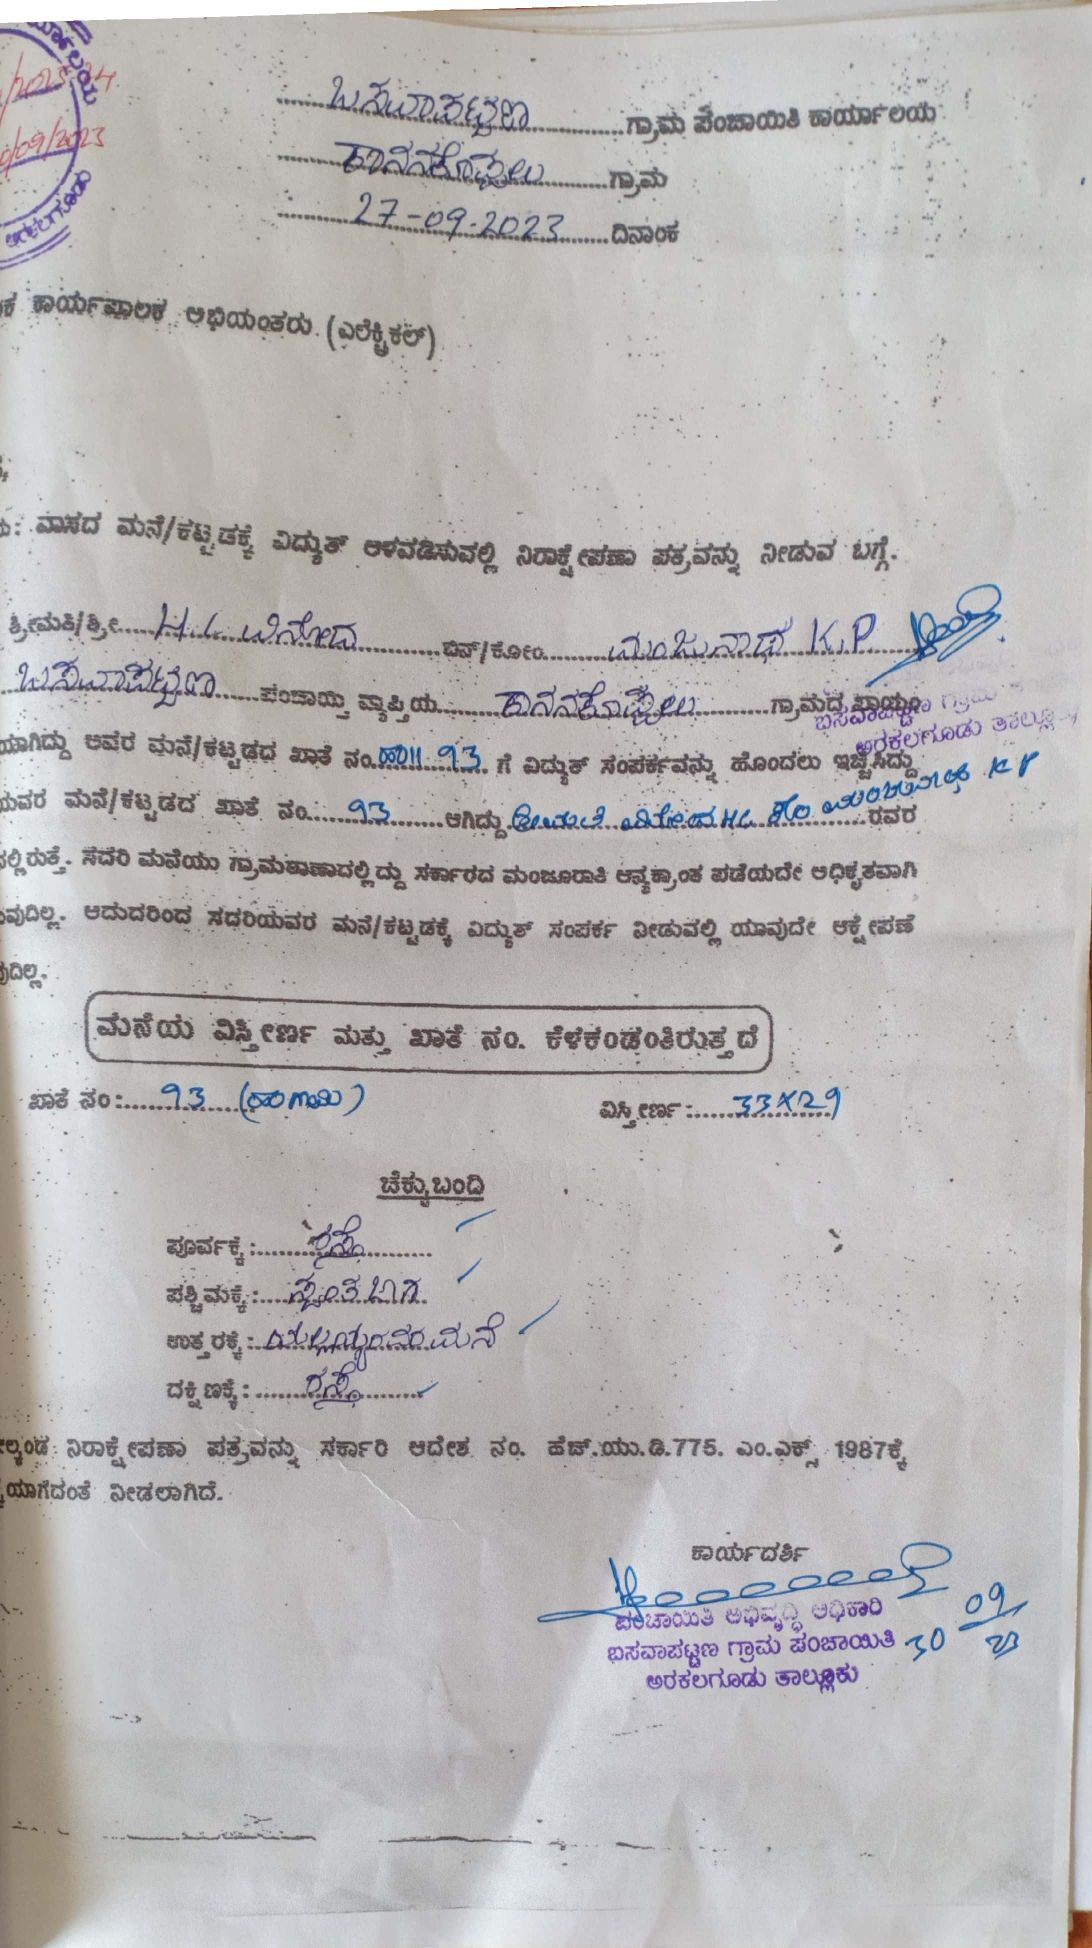 /2023-24
30/09/2023
ಅರಕಲಗೂಡು
ಬಸವಾಪಟ್ಟಣ ಗ್ರಾಮ ಪಂಚಾಯಿತಿ ಕಾರ್ಯಾಲಯ
ಕಾನನಕೊಪ್ಪಲು ಗ್ರಾಮ
27-09-2023 ದಿನಾಂಕ
ಕ ಕಾರ್ಯಪಾಲಕ ಅಭಿಯಂತರು. (ಎಲೆಕ್ಟ್ರಿಕಲ್)
: ವಾಸದ ಮನೆ/ಕಟ್ಟಡಕ್ಕೆ ವಿದ್ಯುತ್ ಅಳವಡಿಸುವಲ್ಲಿ ನಿರಾಕ್ಷೇಪಣಾ ಪತ್ರವನ್ನು ನೀಡುವ ಬಗ್ಗೆ.
ಶ್ರೀಮತಿ/ಶ್ರೀ......H.L ವಿನೋದ..........ಬಿನ್/ಕೋಂ......ಮಂಜುನಾಥ K.P
ಬಸವಾಪಟ್ಟಣ......ಪಂಚಾಯ್ತಿ ವ್ಯಾಪ್ತಿಯ......ಕಾನನಕೊಪ್ಪಲು..........ಗ್ರಾಮದ ಖಾಯಂ
ಬಸವಾಪಟ್ಟಣ ಗ್ರಾಮ
ಅರಕಲಗೂಡು ತಾಲ್ಲೂಕು
ಯಾಗಿದ್ದು ಅವರ ಮನೆ/ಕಟ್ಟಡದ ಖಾತೆ ನಂ. 93 ಗೆ ವಿದ್ಯುತ್ ಸಂಪರ್ಕವನ್ನು ಹೊಂದಲು ಇಚ್ಚಿಸಿದ್ದು
ಯವರ ಮನೆ/ಕಟ್ಟಡದ ಖಾತೆ ನಂ......93........ಆಗಿದ್ದು ಶ್ರೀಮತಿ ವಿನೋದ HL ಕೋಂ ಮಂಜುನಾಥ್ K P ರವರ
ನಲ್ಲಿರುತ್ತೆ. ಸದರಿ ಮನೆಯು ಗ್ರಾಮಠಾಣಾದಲ್ಲಿದ್ದು ಸರ್ಕಾರದ ಮಂಜೂರಾತಿ ಅನ್ಯಕ್ರಾಂತ ಪಡೆಯದೇ ಅಧಿಕೃತವಾಗಿ
ವುದಿಲ್ಲ. ಆದುದರಿಂದ ಸದರಿಯವರ ಮನೆ/ಕಟ್ಟಡಕ್ಕೆ ವಿದ್ಯುತ್ ಸಂಪರ್ಕ ನೀಡುವಲ್ಲಿ ಯಾವುದೇ ಆಕ್ಷೇಪಣೆ
ವುದಿಲ್ಲ.
ಮನೆಯ ವಿಸ್ತೀರ್ಣ ಮತ್ತು ಖಾತೆ ನಂ. ಕೆಳಕಂಡಂತಿರುತ್ತದೆ
ಖಾತೆ ನಂ:......93 ವಿಸ್ತೀರ್ಣ:......33X29
ಚೆಕ್ಕುಬಂದಿ
ಪೂರ್ವಕ್ಕೆ:........ರಸ್ತೆ..........
ಪಶ್ಚಿಮಕ್ಕೆ:.....ಸ್ವಂತ ಜಾಗ
ಉತ್ತರಕ್ಕೆ: ಮನೆ
ದಕ್ಷಿಣಕ್ಕೆ:........ರಸ್ತೆ..........
ಮೇಲ್ಕಂಡ ನಿರಾಕ್ಷೇಪಣಾ ಪತ್ರವನ್ನು ಸರ್ಕಾರಿ ಆದೇಶ ನಂ. ಹೆಚ್.ಯು.ಡಿ.775. ಎಂ.ಎಕ್ಸ್ 1987ಕ್ಕೆ
ಯಾಗದಂತೆ ನೀಡಲಾಗಿದೆ.
ಕಾರ್ಯದರ್ಶಿ
ಪಂಚಾಯಿತಿ ಅಭಿವೃದ್ಧಿ ಅಧಿಕಾರಿ
ಬಸವಾಪಟ್ಟಣ ಗ್ರಾಮ ಪಂಚಾಯಿತಿ 30/09/23
ಅರಕಲಗೂಡು ತಾಲ್ಲೂಕು